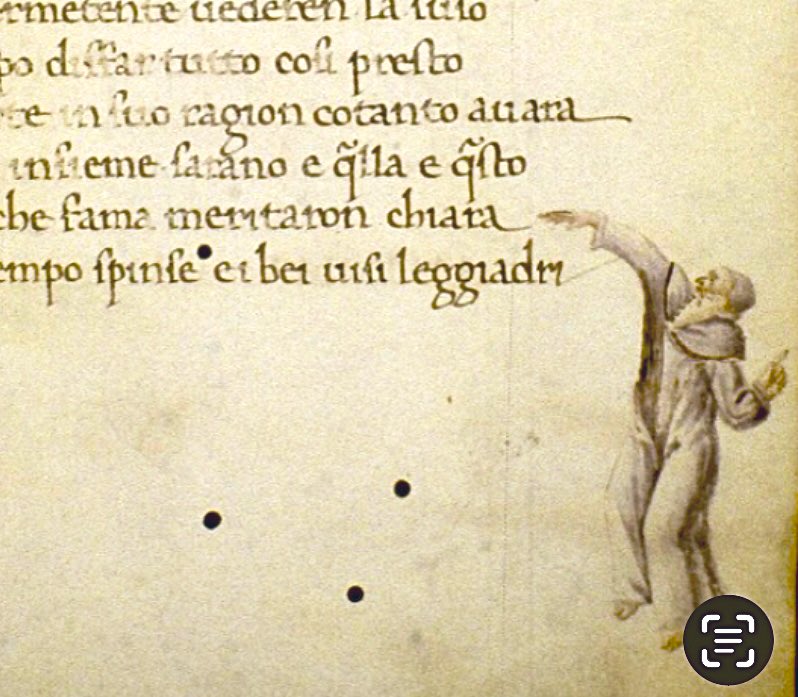 ermetente uederen la lulo
po disfar tutto cosi presto
te in suo ragion cotanto auara
insieme sarano e q̃lla e q̃sto
che fama meritaron chiara
empo spinse ei bei uisi leggiadri